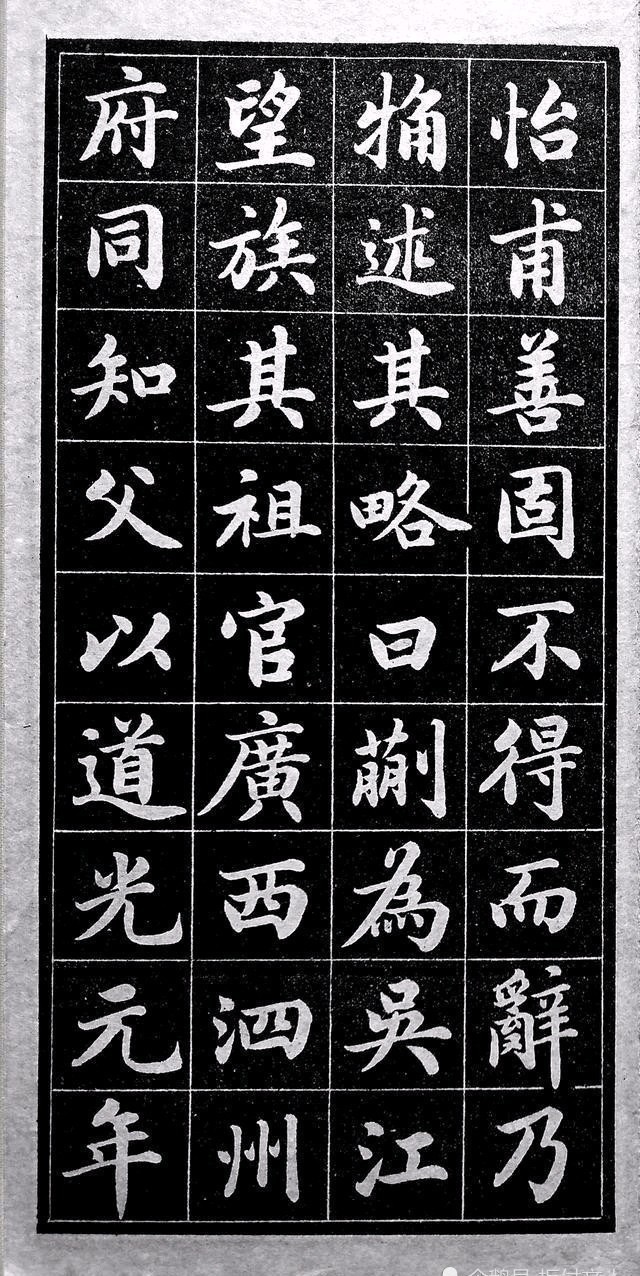 怡甫善固不得而辭乃
觕述其略曰蒯為吳江
望族其祖官廣西泗州
府同知父以道光元年